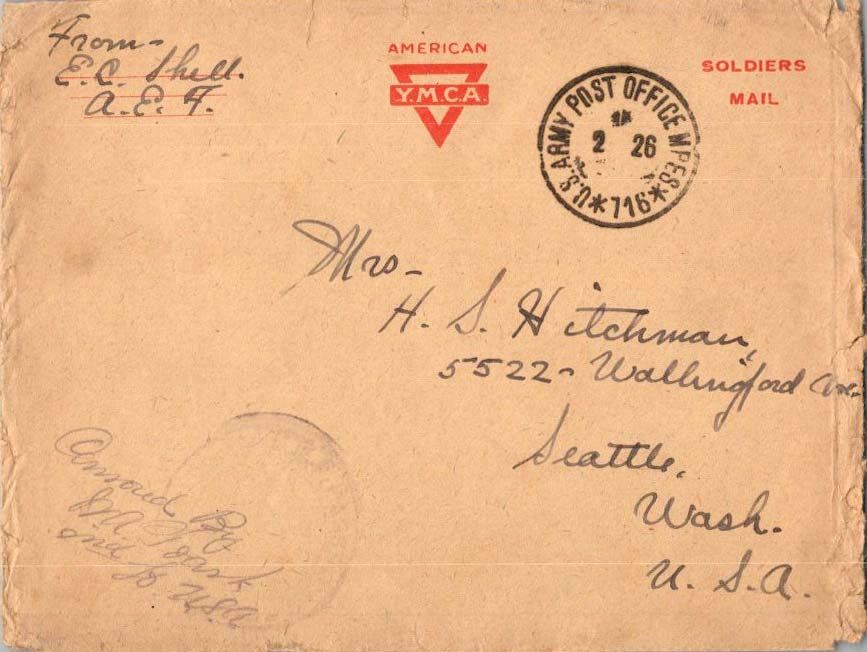 From-
E. C. Shell.
A. E. F.
AMERICAN
Y.M.C.A.
SOLDIERS
MAIL
U.S. ARMY POST OFFICE MPES
2 26
*716*
Mrs-
H. S. Hitchman,
5522- Wallingford Ave.
Seattle,
Wash.
U. S. A.
By
USA